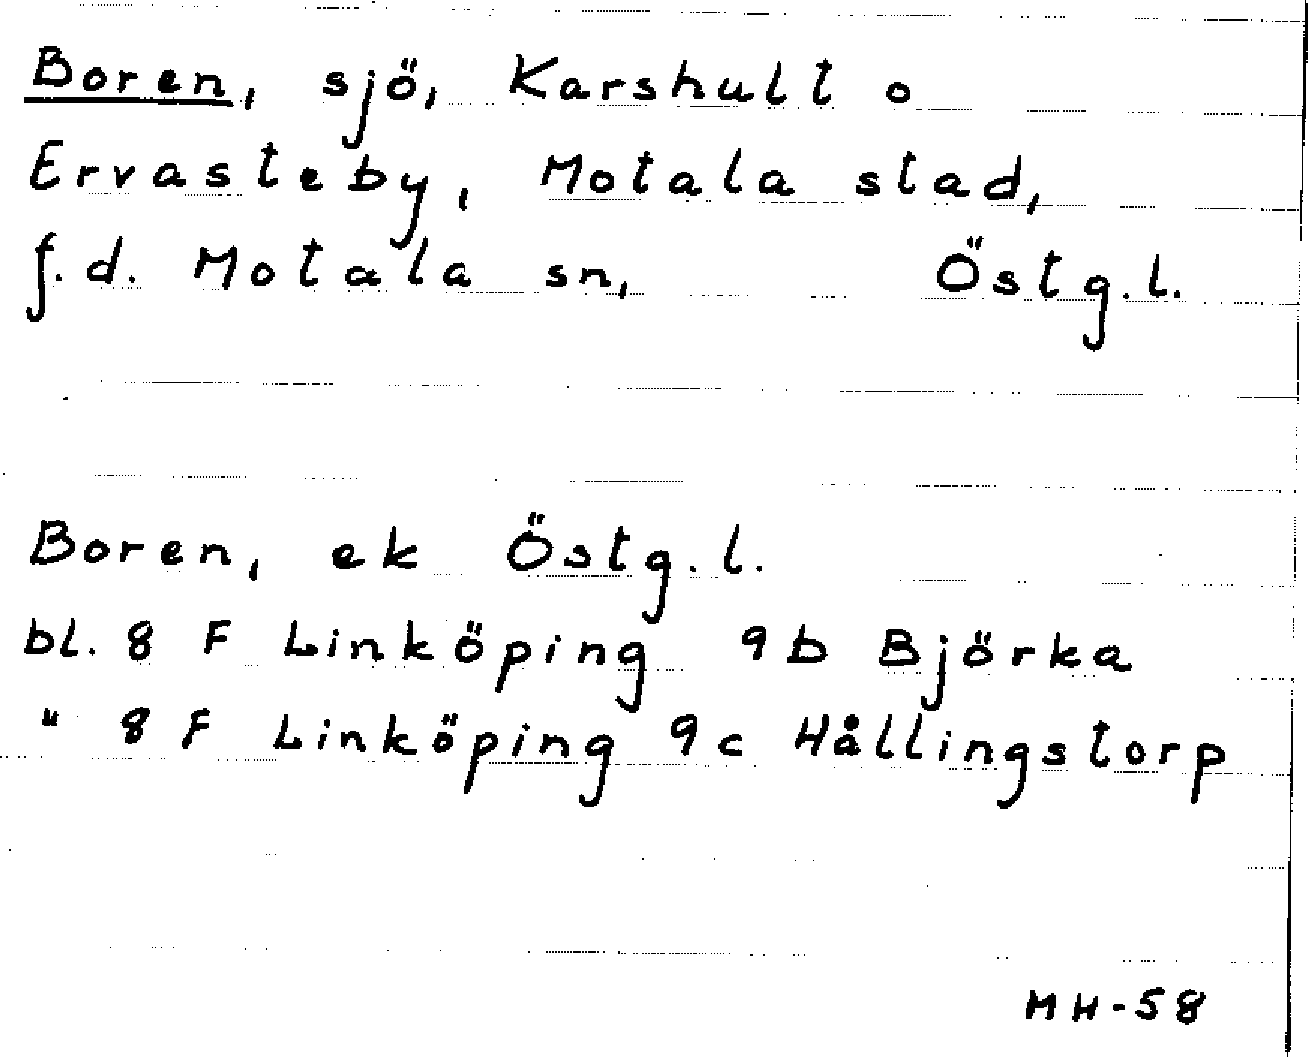 Boren, sjö, Karshult o
Ervasteby, Motala stad,
f.d. Motala sn, Östg.l.
Boren, ek Östg.l.
bl. 8 F Linköping 9b Björka
" 8 F Linköping 9c Hållingstorp
MH-58